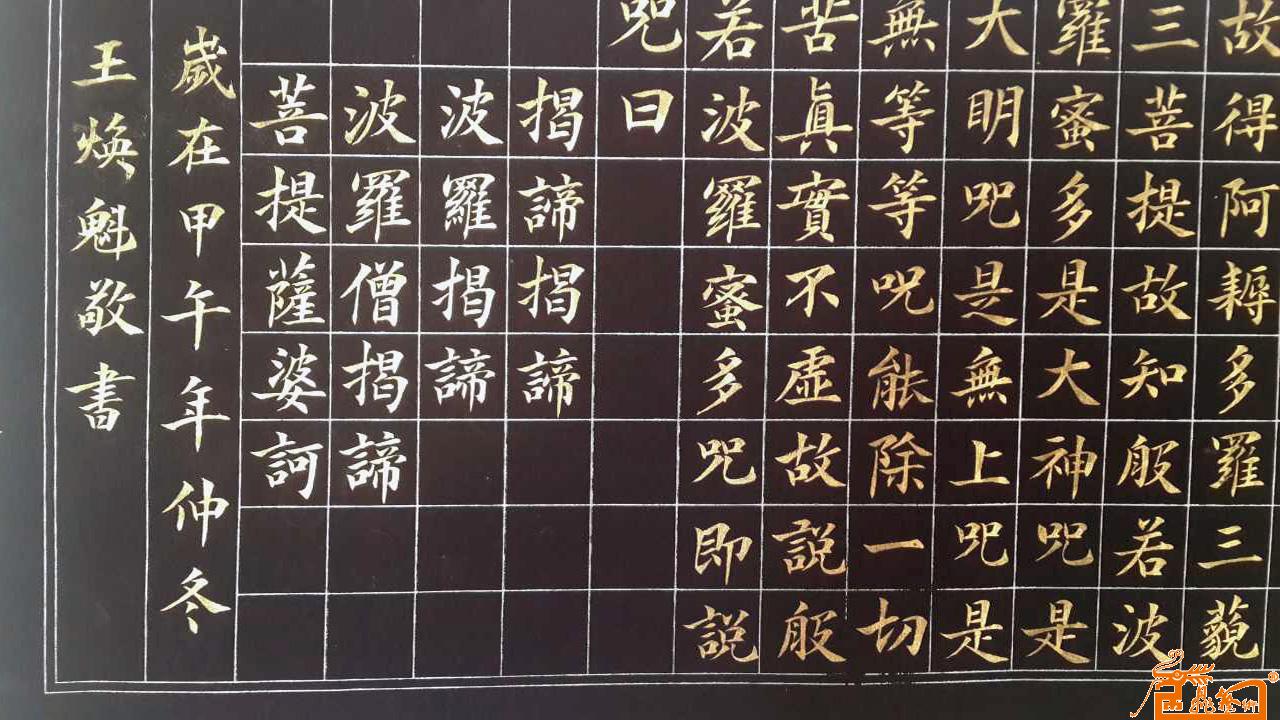 故得阿耨多羅三藐
三菩提故知般若波
羅蜜多是大神咒是
大明咒是無上咒是
無等等咒能除一切
苦真實不虛故說般
若波羅蜜多咒即說
咒曰
揭諦揭諦
波羅揭諦
波羅僧揭諦
菩提薩婆訶
歲在甲午年仲冬
王煥魁敬書